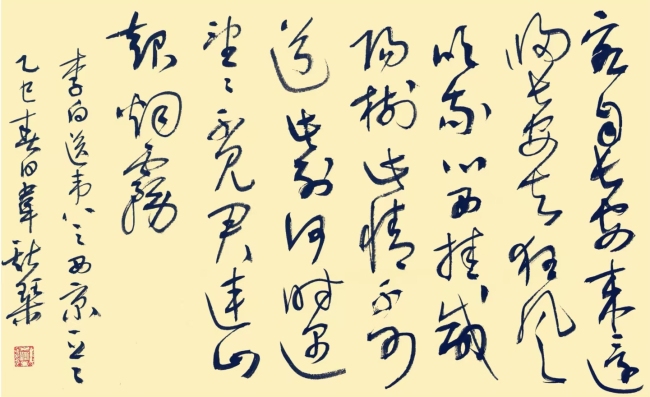 客自长安来还
归长安去狂风
吹我心西挂咸
阳树此情不可
道此别何时遇
望々不见君连山
起烟霧
李白送韦八之西京
乙巳春日韋